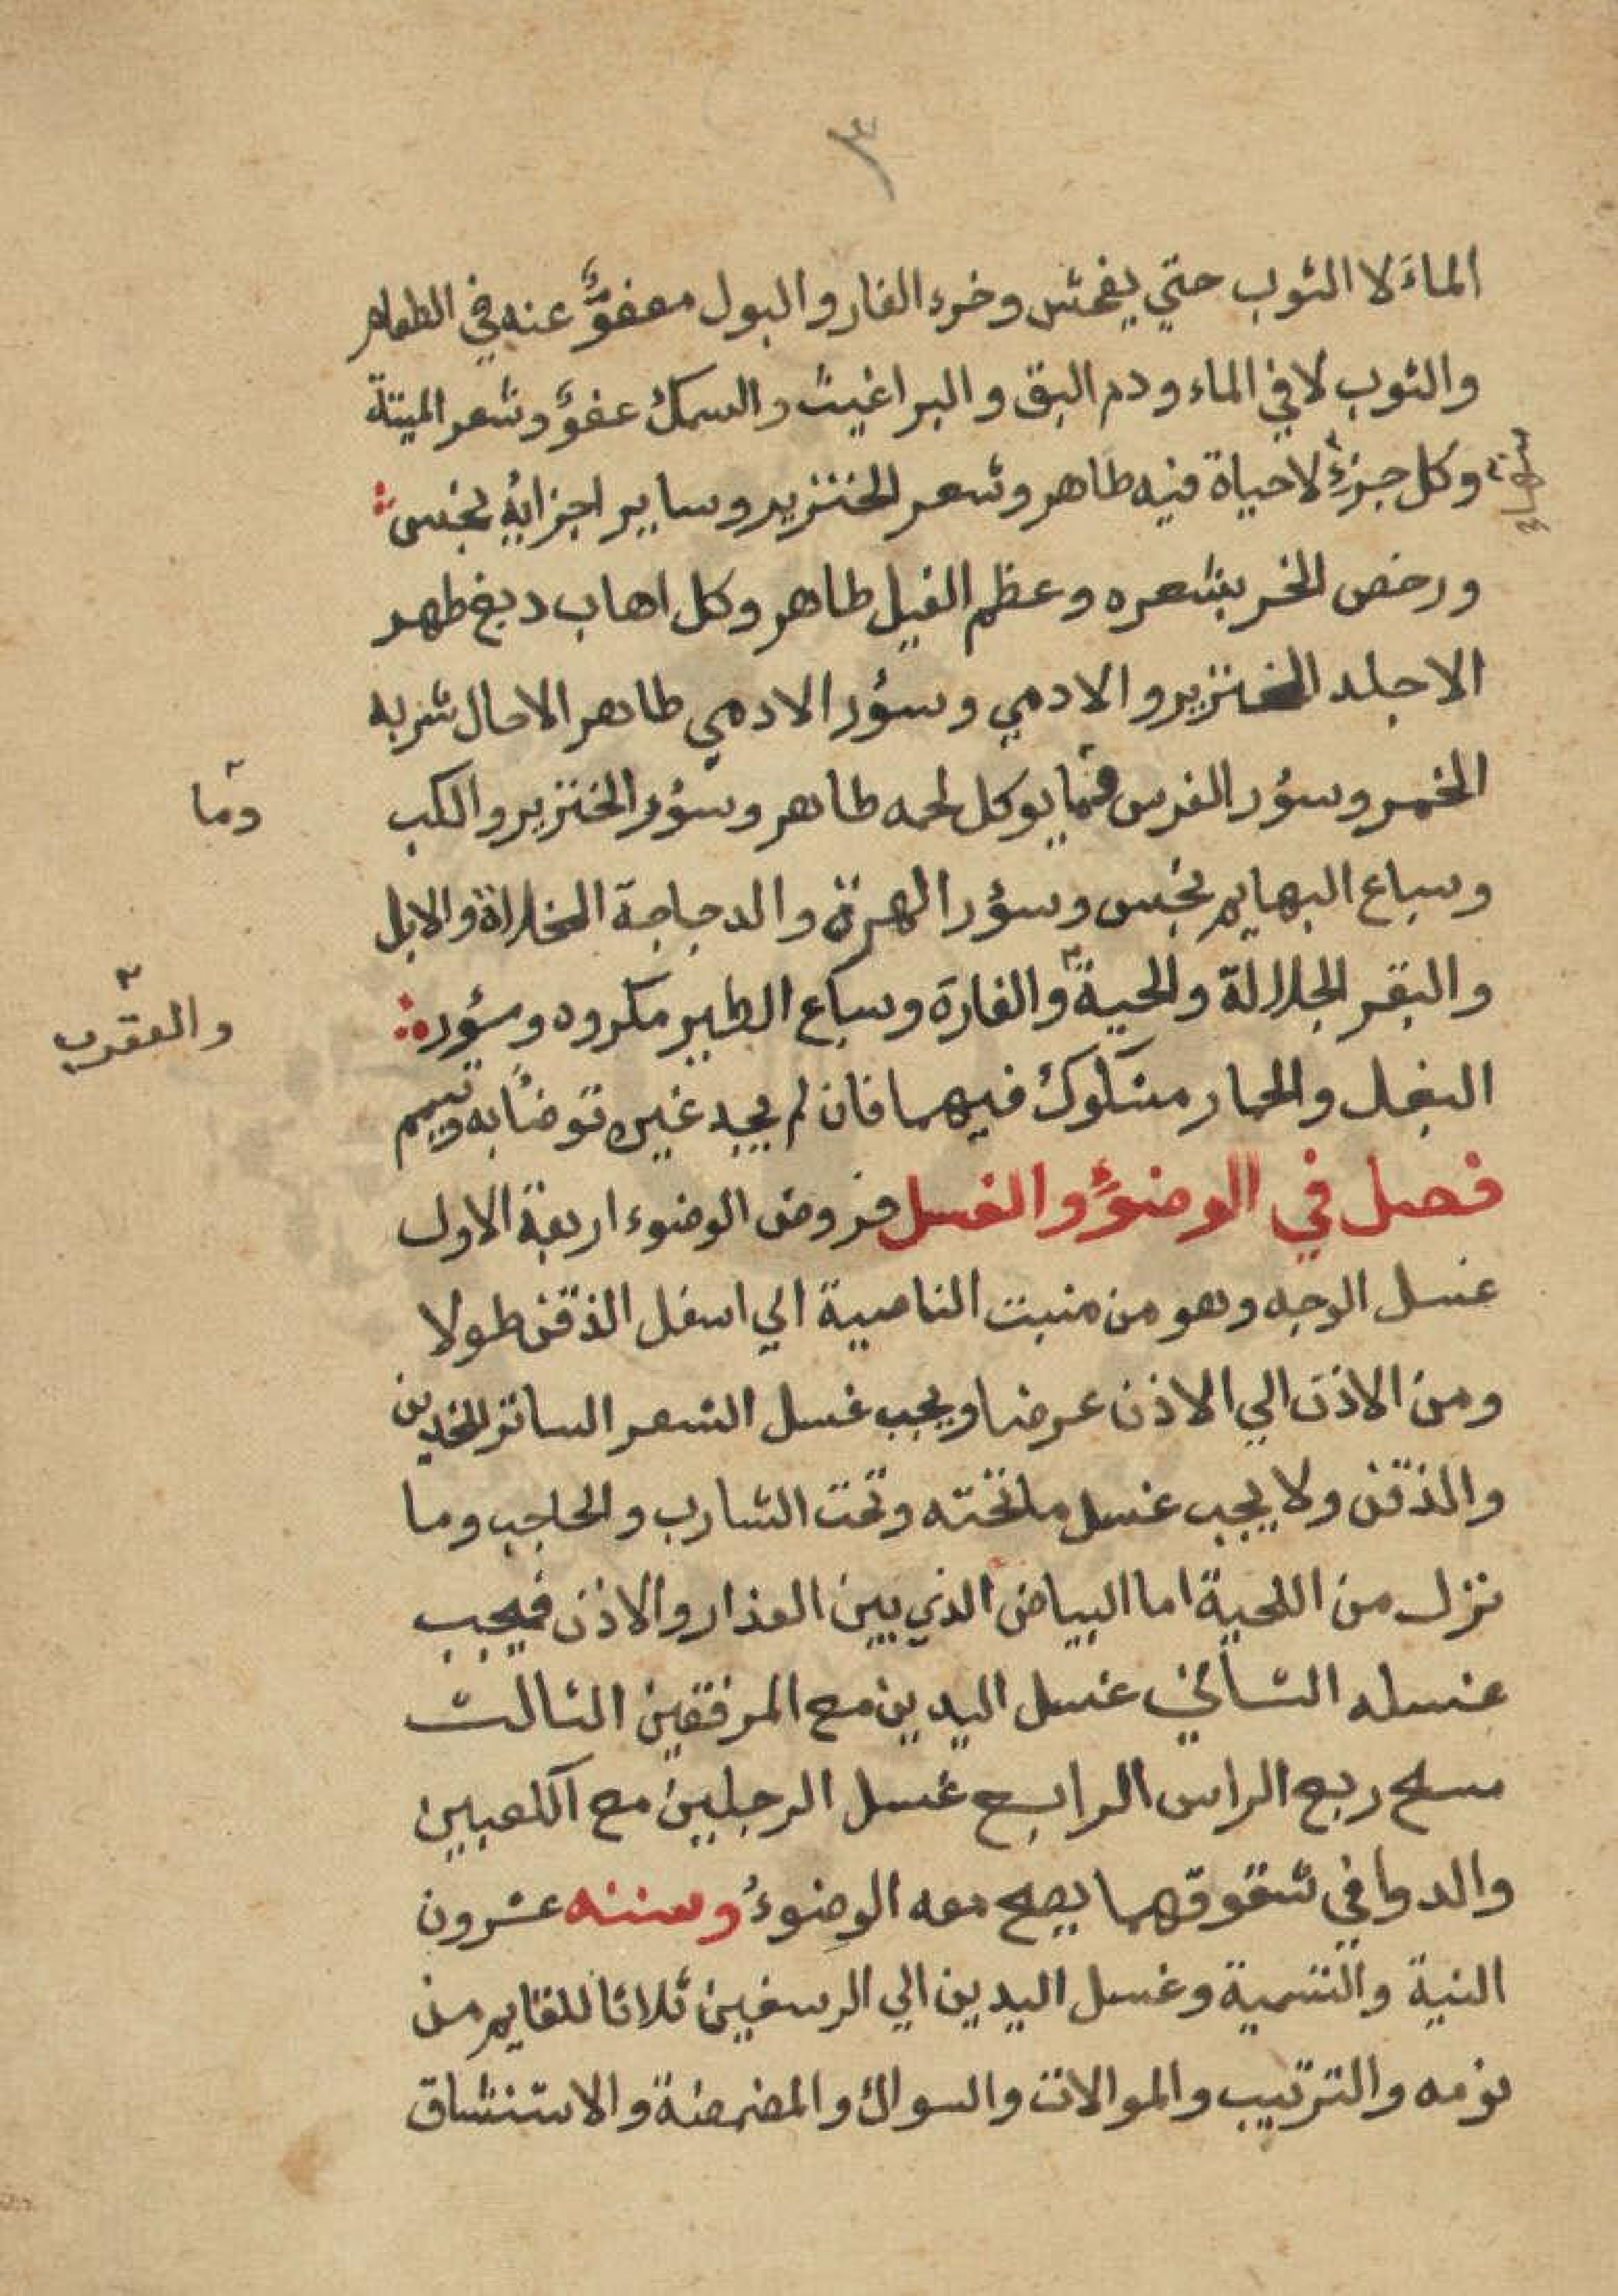 ٣
الماءَ لا الثوب حتي يفحش وخرء الفار والبول معفوٌّ عنه في الطعام
والثوب لا في الماء ودم البق والبراغيث والسمك عفوٌ وشعر الميتة
وكل جزءٍ لا حياة فيه طاهر وشعر الخنزير وساير اجزايهِ نجس
ورخص الخرز بشعره وعظم الفيل طاهر وكل اهاب دبغ طهر
الا جلد الخنزير والادمي وسؤر الادمي طاهر الا حال شربه
الخمر وسؤر الفرس وما يوكل لحمه طاهر وسؤر الخنزير والكب
وما
وسباع البهايم نجس وسؤر الهرة والدجاجة المخلاة والابل
والبقر الجلالة والحية والفارة وسباع الطير مكروه وسؤر
والعقرب
البغل والحمار مشكوك فيهما فان لم يجد غيره توضأ به وتيمم
فصل في الوضوءِ والغسل فروض الوضوء اربعة الاول
غسل الوجه وهو من منبت الناصية الي اسفل الذقن طولا
ومن الاذن الي الاذن عرضا ويجب غسل الشعر الساتر للخدين
والذقن ولا يجب غسل ما تحته وتحت الشارب والحاجب وما
نزل من اللحية اما البياض الذي بين العذار والاذن فيجب
غسله الثاني غسل اليدين مع المرفقين الثالث
مسح ربع الراس الرابع غسل الرجلين مع الكعبين
والدوا في شقوقهما يصح معه الوضوءُ وسننه عشرون
النية والتسمية وغسل اليدين الي الرسغين ثلاثا للقايم من
نومه والترتيب والموالات والسواك والمضمضة والاستنشاق